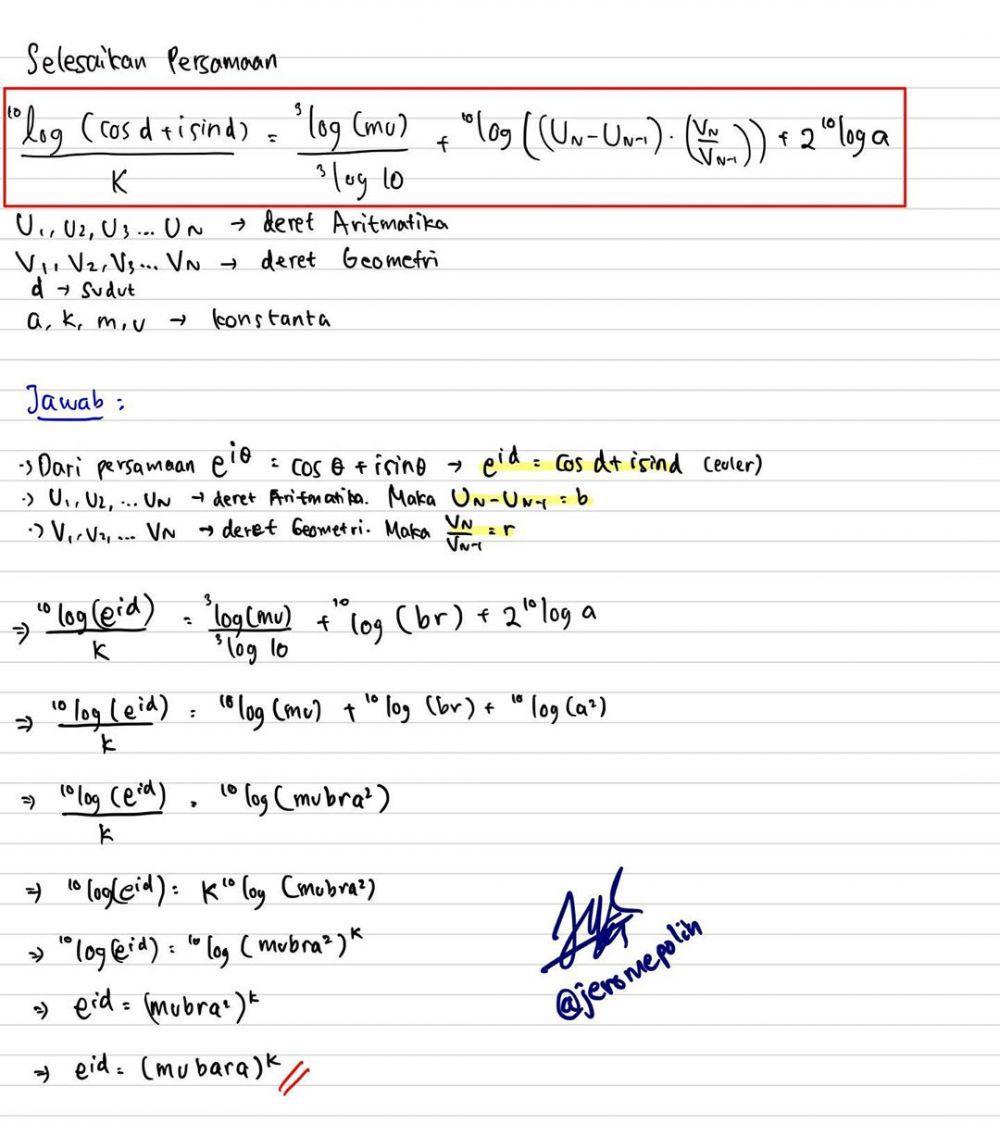 Selesaikan Persamaan
¹⁰log (cos d + i sin d) / K = ³log (mu) / ³log 10 + ¹⁰log ((U_N - U_N-1) · (V_N / V_N-1)) + 2 ¹⁰log a
U₁, U₂, U₃ ... U_N → deret Aritmatika
V₁, V₂, V₃ ... V_N → deret Geometri
d → sudut
a, k, m, u → konstanta
Jawab :
·) Dari persamaan e^iθ = cos θ + i sin θ → e^id = cos d + i sin d (euler)
·) U₁, U₂, ... U_N → deret Aritmatika. Maka U_N - U_N-1 = b
·) V₁, V₂, ... V_N → deret Geometri. Maka V_N / V_N-1 = r
⇒ ¹⁰log (e^id) / k = ³log (mu) / ³log 10 + ¹⁰log (br) + 2 ¹⁰log a
⇒ ¹⁰log (e^id) / k = ¹⁰log (mu) + ¹⁰log (br) + ¹⁰log (a²)
⇒ ¹⁰log (e^id) / k = ¹⁰log (mubra²)
⇒ ¹⁰log (e^id) = K ¹⁰log (mubra²)
⇒ ¹⁰log (e^id) = ¹⁰log (mubra²)^K
⇒ e^id = (mubra²)^k
⇒ eid = (mubara)^K
@jeromepolin